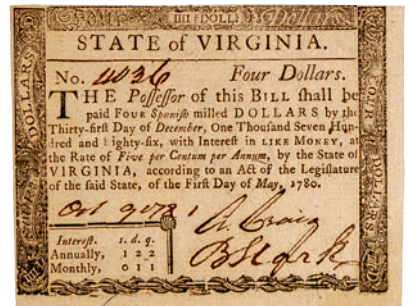 IIII DOLL:
Dollars
STATE of VIRGINIA.
No. 4036 Four Dollars.
THE Poſſeſſor of this BILL ſhall be
paid FOUR Spaniſh milled DOLLARS by the
Thirty-firſt Day of December, One Thouſand Seven Hun-
dred and Eighty-ſix, with Intereſt in LIKE MONEY, at
the Rate of Five per Centum per Annum, by the State of
VIRGINIA, according to an Act of the Legiſlature
of the ſaid State, of the Firſt Day of May, 1780.
Intereſt. s. d. q.
Annually, 1 2 2
Monthly, 0 1 1
DOLLARS
FOUR DOLLARS